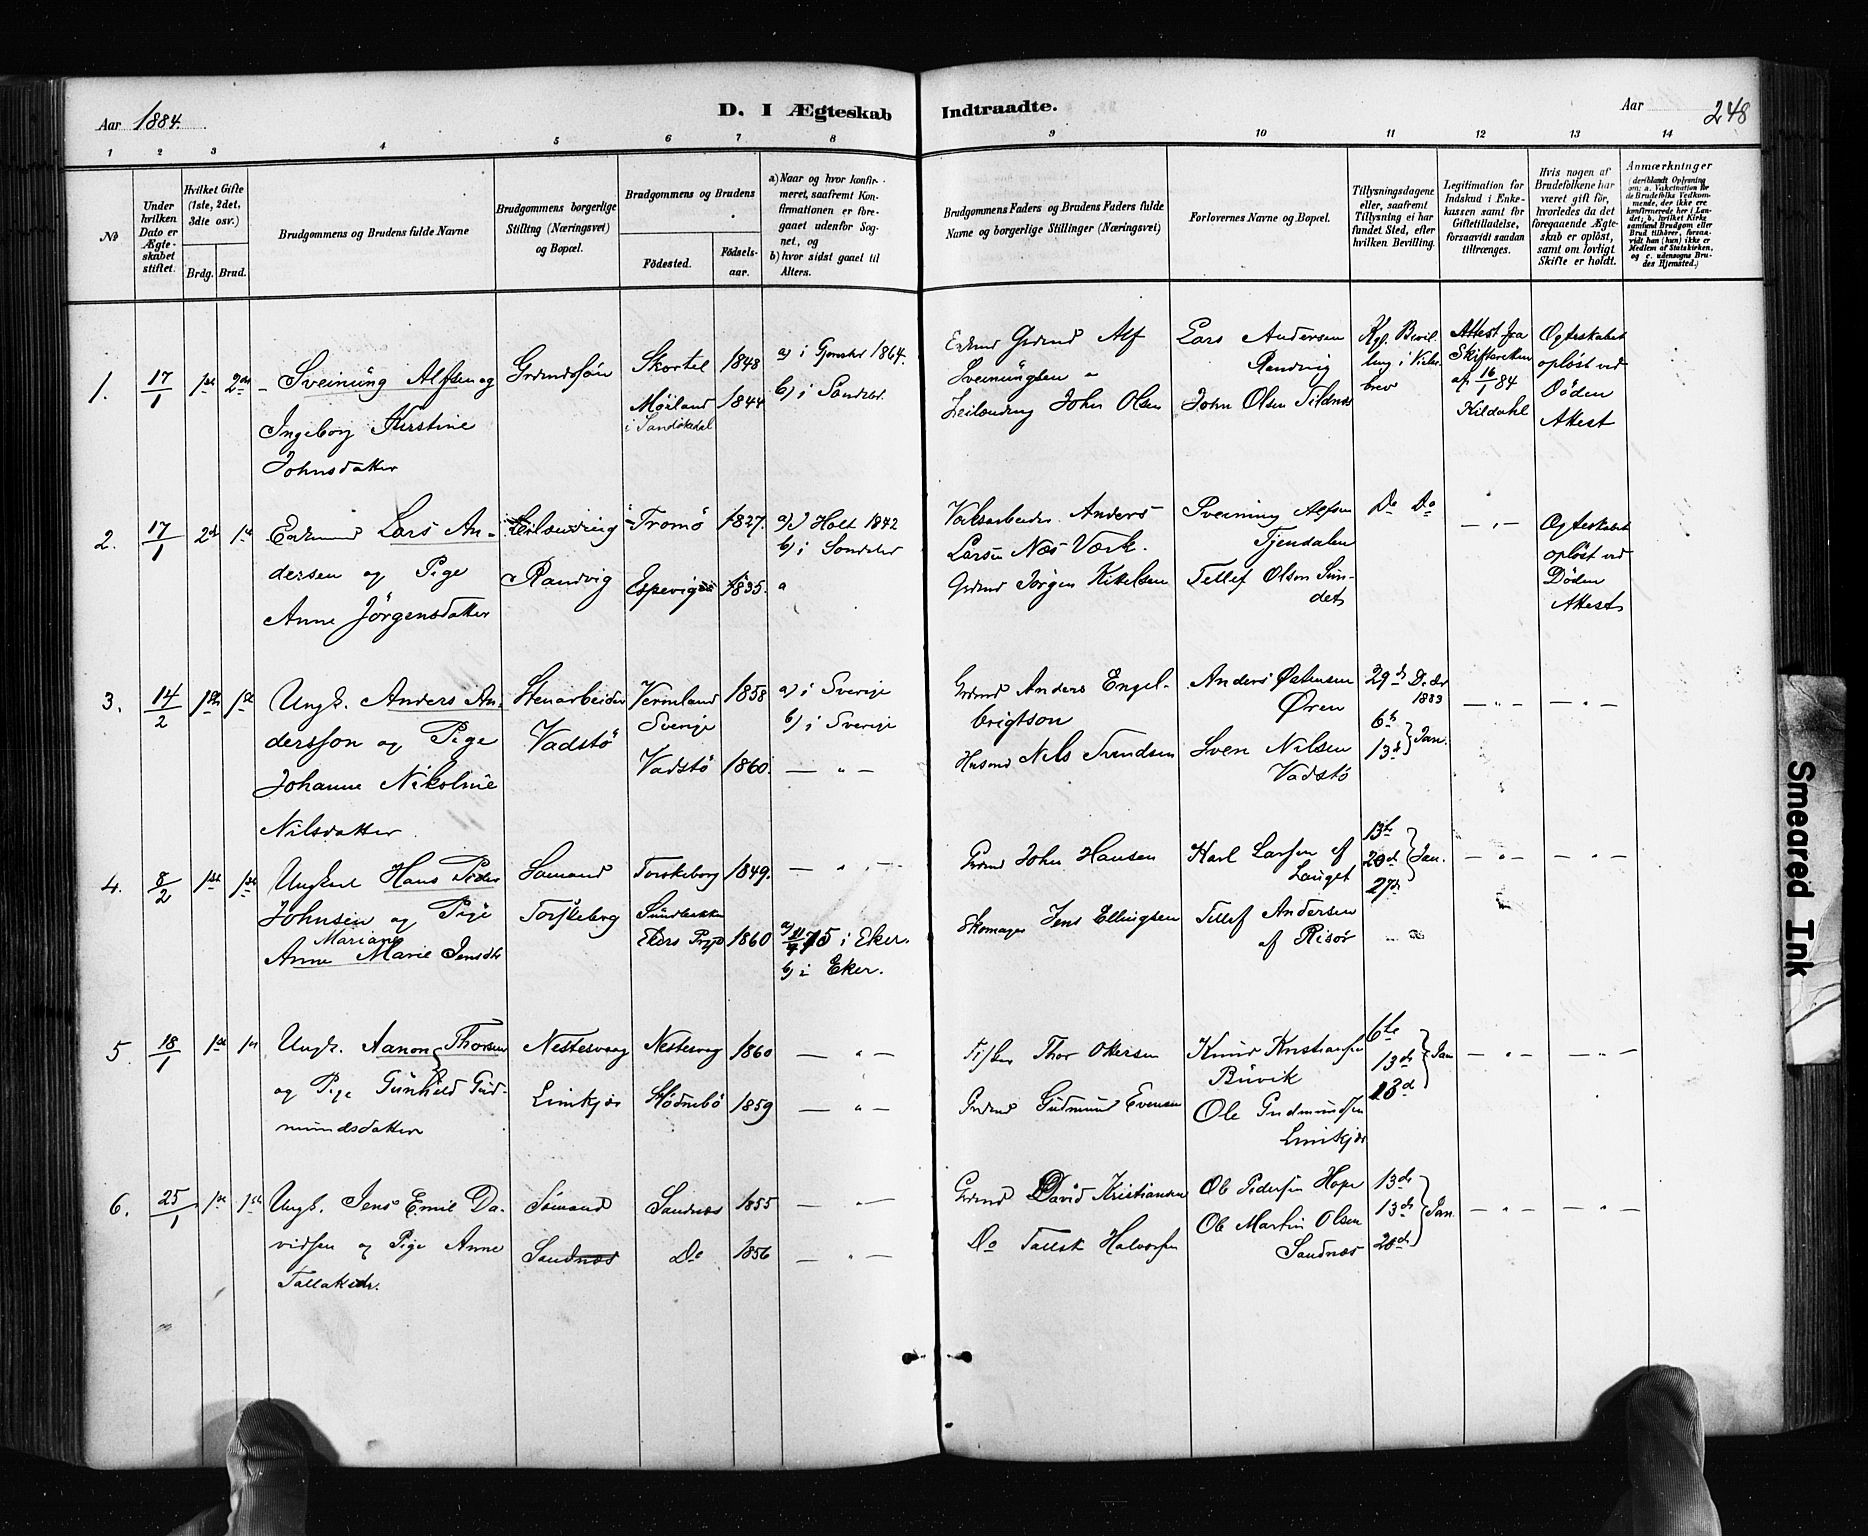 Aar 1884.
D. I Ægteskab Indtraadte.
Aar 248
1 2 3 4 5 6 7 8 9 10 11 12 13 14
No
Under hvilken Dato er Ægteskabet stiftet.
Hvilket Gifte (1ste, 2det, 3die osv.)
Brdg. Brud.
Brudgommens og Brudens fulde Navne
Brudgommens borgerlige Stilling (Næringsvei) og Bopæl.
Brudgommens og Brudens
Födested.
Födselsaar.
a) Naar og hvor konfirmeret, saafremt Konfirmationen er foregaaet udenfor Sognet, og
b) hvor sidst gaaet til Alters.
Brudgommens Faders og Brudens Faders fulde Navne og borgerlige Stillinger (Næringsvei)
Forlovernes Navne og Bopæl.
Tillysningsdagene eller, saafremt Tillysning ei har fundet Sted, efter hvilken Bevilling.
Legitimation for Indskud i Enkekassen samt for Giftetilladelse, forsaavidt saadan tiltrænges.
Hvis nogen af Brudefolkene har været gift för, hvorledes da det foregaaende Ægteskab er oplöst, samt om lovligt Skifte er holdt.
Anmærkninger
(deriblandt Oplysning om: a. Vakcination for de Brudefolks Vedkommende, der ikke ere konfirmerede her i Landet; b. hvilket Kirkesamfund Brudgom eller Brud tilhörer, forsaavidt han (hun) ikke er Medlem af Statskirken, og c. udensogns Brudes Hjemsted.)
1. 17/1 1ste 2den
Sveinung Alfsen og
Ingeborg Kerstine
Johnsdatter
Grdmdssön
Skortel 1848
Möiland 1844
i Sandökedal
a) i Gjerstad 1864.
b) i Sondeled.
Grdmd Alf
Sveinungsen
Leilænding John Olsen
Lars Andersen
Randvig
John Olsen Sildnæs
Kgl. Bevilling i Kirkebrev
Attest fra
Skifteretten
af 16/1 84
Kildahl
Ægteskabet
oplöst ved
Döden
Attest
2. 17/1 2det 1ste
Enkemand Lars Andersen og Pige
Anne Jörgensdatter
Leilænding
Randvig
Tromö 1827.
Espevig 1835.
a) i Holt 1842
b) i Sondeled
Anders
Larsen Næs Værk.
Grdmd Jörgen Kittelsen
Sveinung Alfsen
Tjendalen
Tellef Olsen Sundet
Do Do
— " —
Ægteskabet
oplöst ved
Döden
Attest
3. 14/2 1ste 1ste
Ungk. Anders Andersson og Pige
Johanne Nikoline
Nilsdatter
Stenarbeider
Vadstö
Vermland 1858
Sverige
Vadstö 1860.
a) i Sverige
b) i Sverige
— " —
Grdmd Anders Engelbrigtson
Husmd Nils Svendsen
Anders Östensen
Ören
Sven Nilsen
Vadstö
29de Decbr 1883
6te
13de } Jan.
— " — — " —
4. 8/2 1ste 1ste
Ungkarl Hans Peder
Johnsen og Pige
Mariane
Anne Marie Jensdtr
Sömand
Torskeberg
Torskeberg 1849.
Ekers Prgd 1860
— " —
a) 11/7 75 i Eker.
b) i Eker.
Grdmd John Hansen
Skomager Jens Ellingsen
Karl Larsen af
Lauget
Tellef Andersen
af Risör
13de
20de } Jan.
27de
— " — — " —
5. 18/1 1ste 1ste
Ungk. Aanon Thorsen
og Pige Gunhild Gudmundsdatter
Nestesvaag
Limkjær
Nestesvag 1860
Stödnebö 1859
— " —
— " —
Thor Ottersen
Grdmd Gudmund Evensen
Knud Kristiansen
Buvik
Ole Gudmundsen
Limkjær
6te
13de } Jan
13de
— " — — " —
6. 25/1 1ste 1ste
Ungk. Jens Emil Davidsen og Pige Anne
Tallaksdr.
Sömand
Sandnæs
Sandnæs 1855
Do 1856
— " —
— " —
Grdmd David Kristiansen
Do Tallak Halvorsen
Ole Pedersen Hope
Ole Martin Olsen
Sandnæs
13de
13de } Jan.
20de
— " — — " —
Smeared Ink